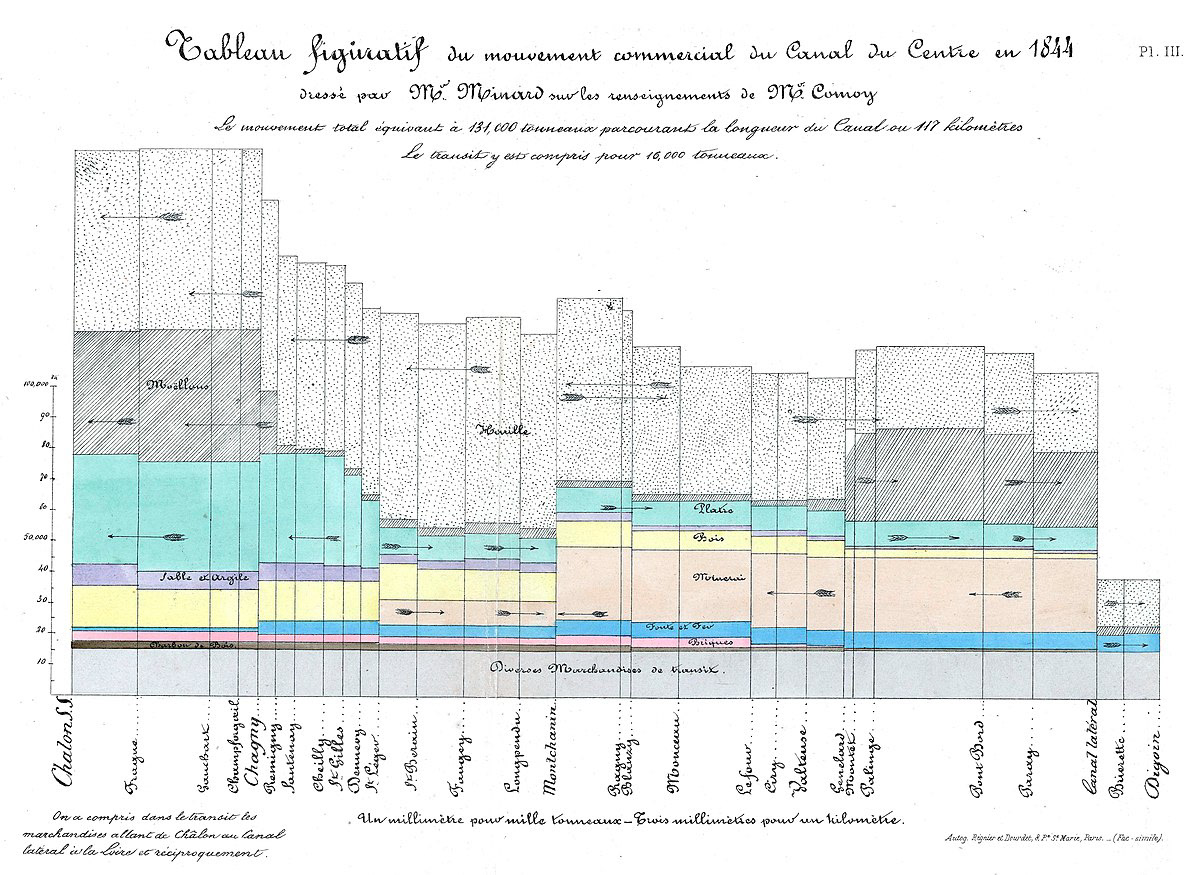 Tableau figuratif du mouvement commercial du Canal du Centre en 1844
Pl. III.
dressé par Mr. Minard sur les renseignements de Mr. Comoy
Le mouvement total équivaut à 131,000 tonneaux parcourant la longueur du Canal ou 117 kilomètres
Le transit y est compris pour 16,000 tonneaux.
100,000
90
80
70
60
50,000
40
30
20
10
Moëllons
Houille
Plâtre
Bois
Sable et Argile
Minerai
Fonte et Fer
Briques
Charbon de Bois
Diverses Marchandises de transit.
Chalon S.S.
Fragne
Chagny
Remigny
Santenay
Cheilly
St. Gilles
Dennevy
St. Léger
St. Berain
Longpendu
Montchanin
Ragny
Blanzy
Monceau
Ciry
Genelard
Palinge
Pont Bord
Paray
Canal latéral
Digoin
On a compris dans le transit les
marchandises allant de Châlon au Canal
latéral à la Loire et réciproquement.
Un millimètre pour mille tonneaux – Trois millimètres pour un kilomètre.
Autog. Régnier et Dourdet, 8, Pge. Ste. Marie, Paris. _ (Fac-simile).